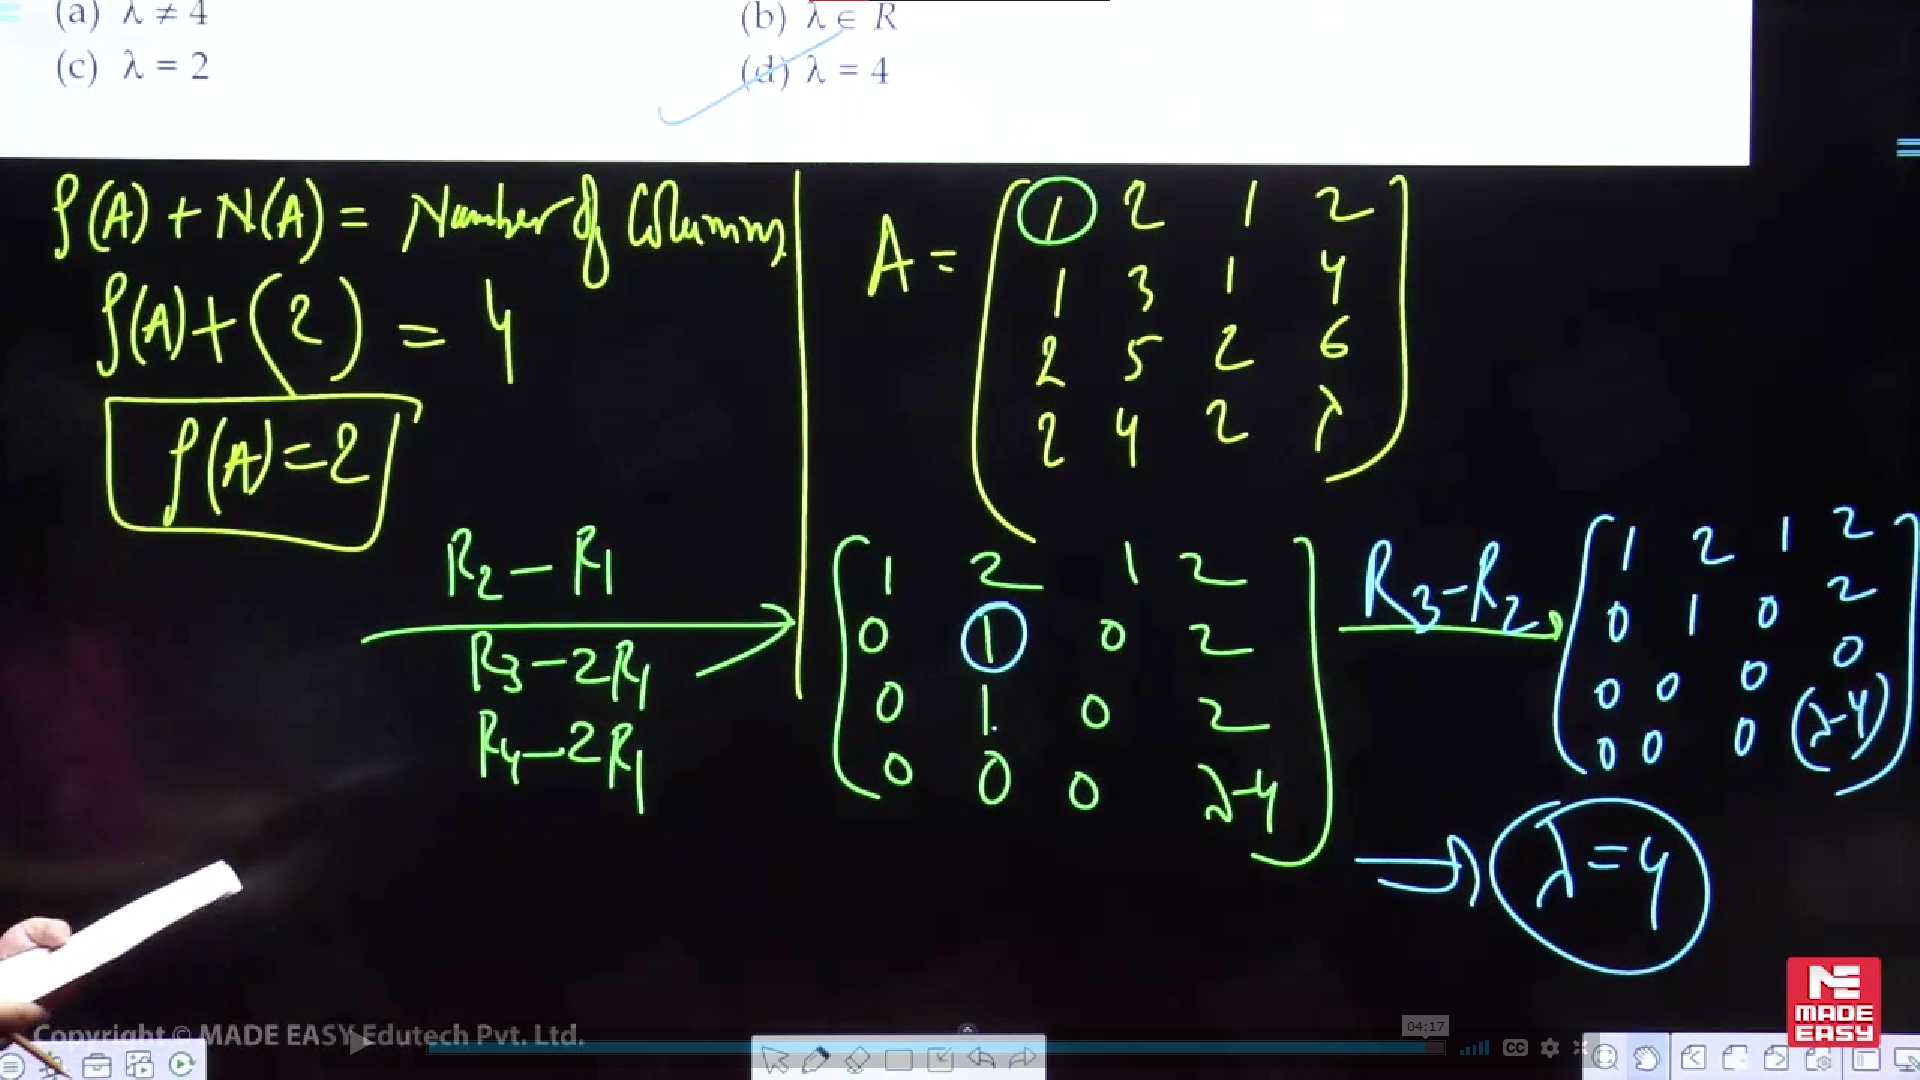 (a) λ ≠ 4
(b) λ ∈ R
(c) λ = 2
(d) λ = 4
ρ(A) + N(A) = Number of Columns
ρ(A) + (2) = 4
ρ(A) = 2
A =
1 2 1 2
1 3 1 4
2 5 2 6
2 4 2 λ
R2 – R1
R3 – 2R1
R4 – 2R1
1 2 1 2
0 1 0 2
0 1 0 2
0 0 0 λ-4
R3 – R2
1 2 1 2
0 1 0 2
0 0 0 0
0 0 0 (λ-4)
λ = 4
ME
MADE
EASY
Copyright © MADE EASY Edutech Pvt. Ltd.
04:17
CC